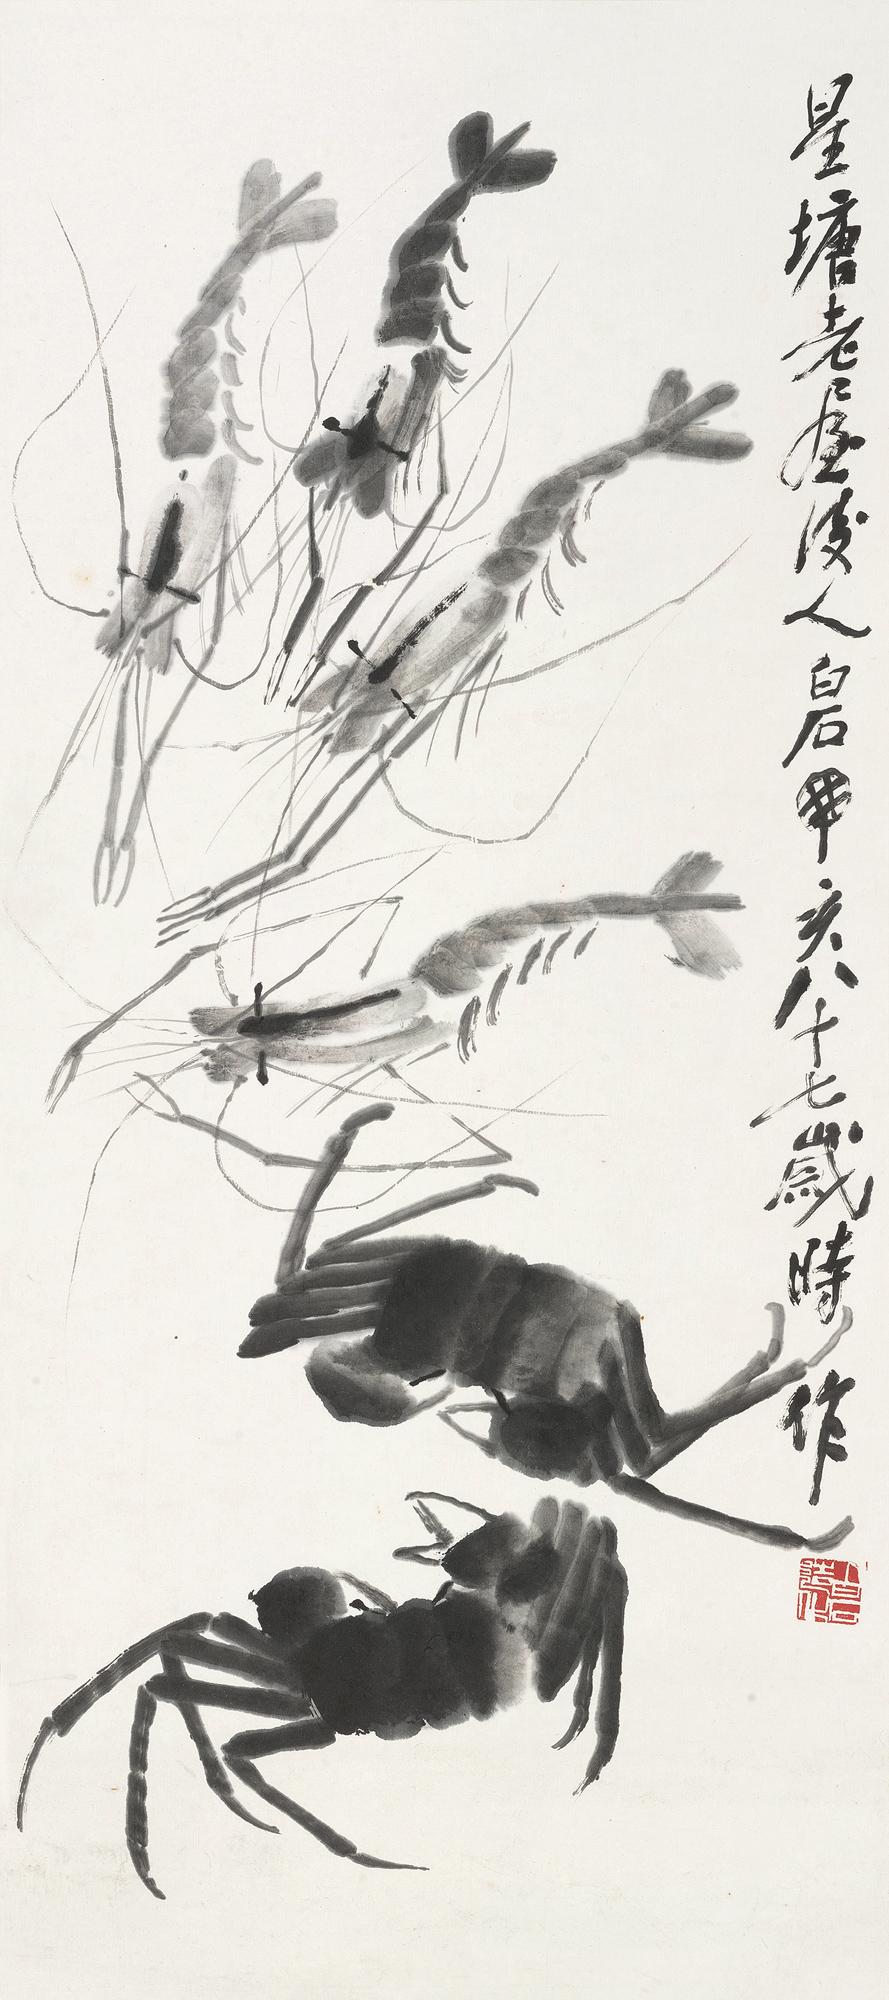 星塘老屋後人白石亥八十七歲時作